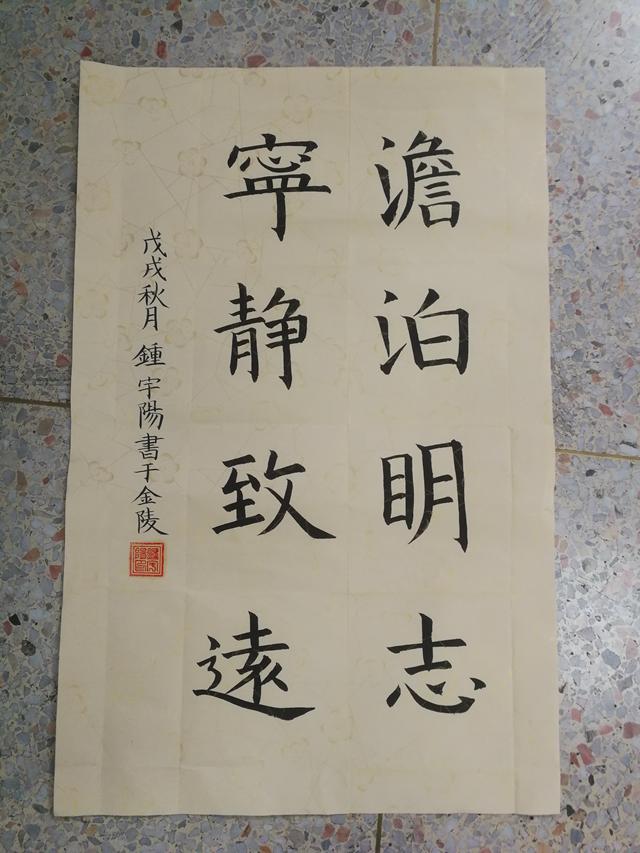 澹泊明志
寧静致遠
戊戌秋月鍾宇陽書于金陵